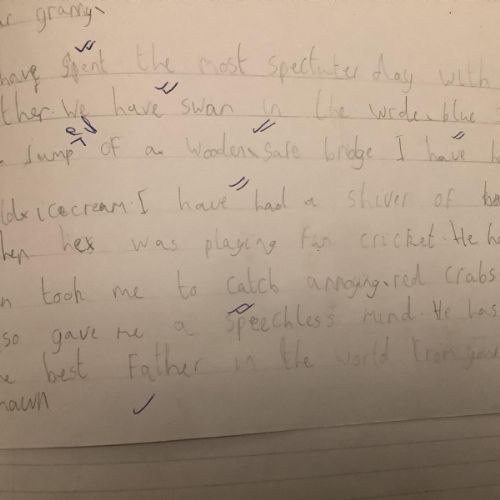 ar granny,
have spent the most spectuter day with
ther. We have swan in the wide, blue
Jumped of a wooden, safe bridge I have h
ld, icecream. I have had a shiver of
hen he was playing fun cricket. He ha
n took me to catch annoying, red crabs
so gave me a speechless mind. He has
e best Father in the world from your
hawn